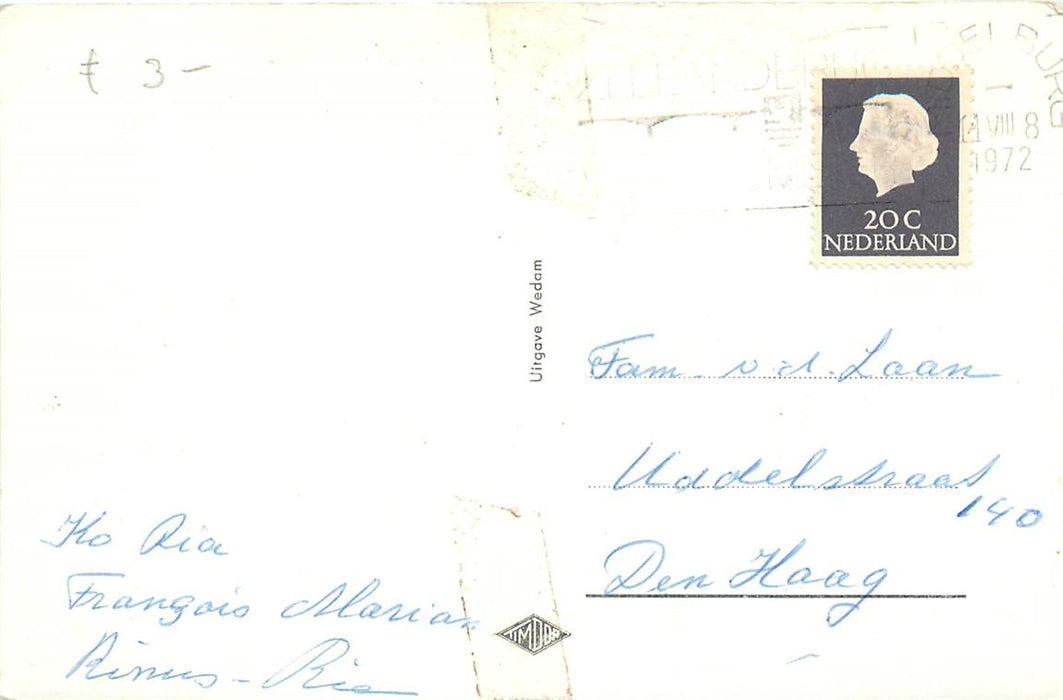 £ 3 -
1972
20 C
NEDERLAND
Uitgave Wedam
Fam. v.d. Laan
Uddelstraat
140
Den Haag
Ko Ria
François Marian
Rinus - Ria